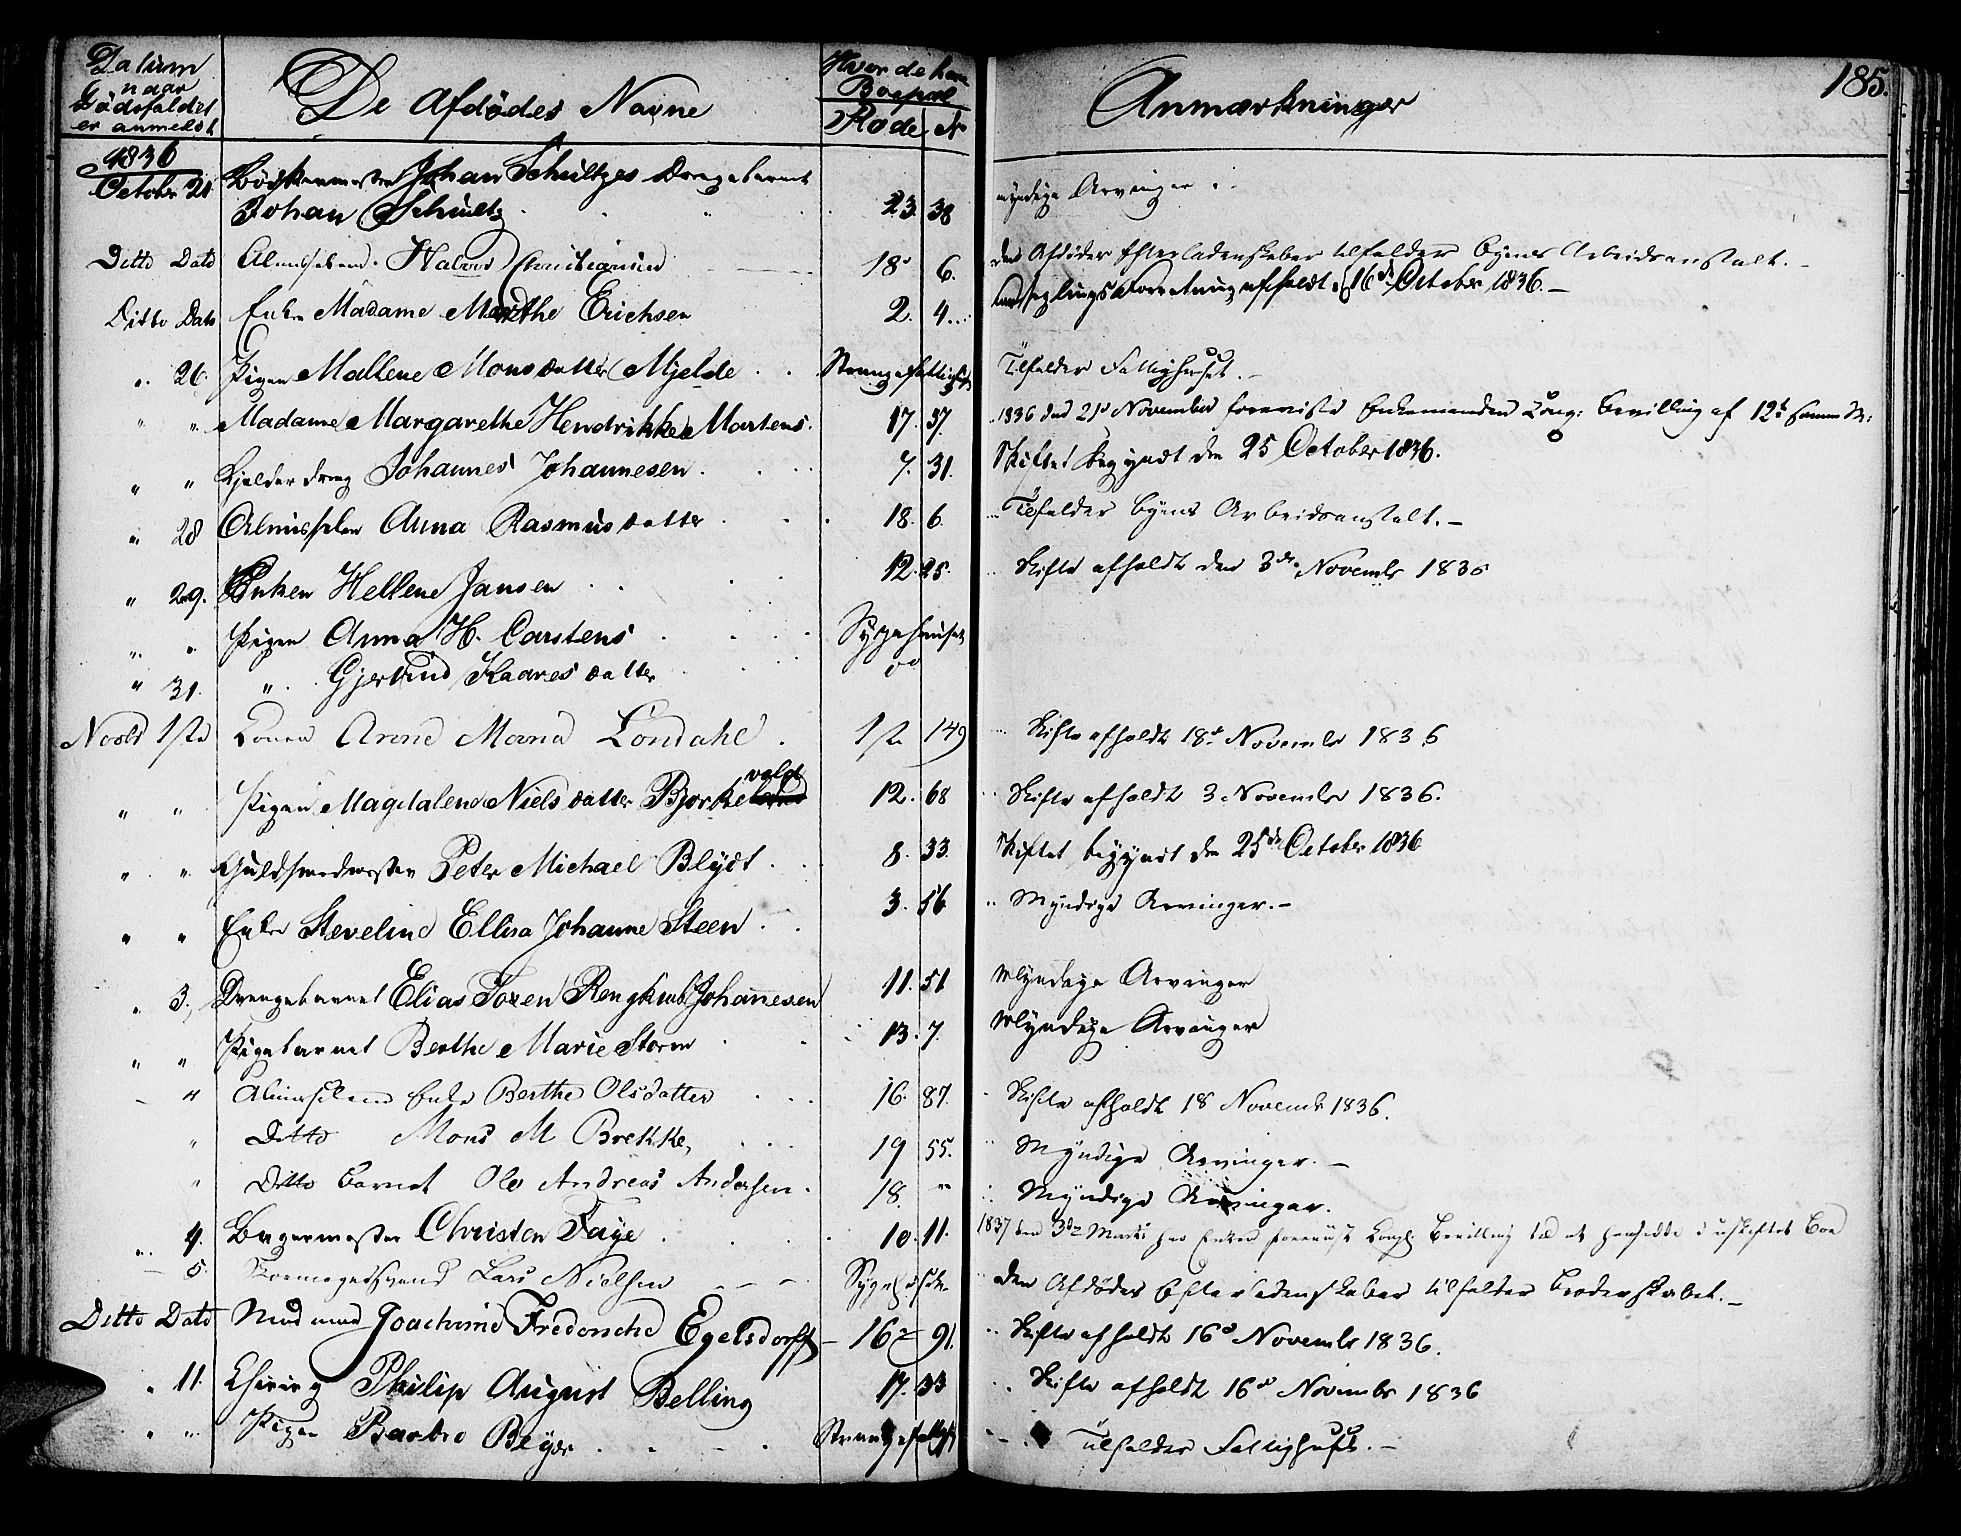 185.
Datum naar Dødsfaldet er anmeldt
De Afdødes Navne
Hvor de have Boepæl
Rode No
Anmærkninger
1836
October 21 Bødkermester Johan Schultzes Drengebarnet
Johan Schultz 23. 38 myndige Arvinger
Ditto Dato Almisselem. Halvor Christiansen 18 6. den Afdødes Efterladenskaber tilfalder Byens Arbeidsanstalt.
Ditto Dato Enke Madame Marthe Erichsen 2. 4. Forseglingsforretning afholdt d 16de October 1836.
" 26. Pigen Mallene Monsdatter Mjelde Strangefattighuus Tilfalder Fattighuset.
" " Madame Margarethe Hendrikke Martens. 17. 37. 1836 den 21d November foreviste Enkemanden Kong: Bevilling af 12t samme M:
" " Kjelderdreng Johannes Johannesen 7. 31. Skiftet begyndt den 25 October 1836.
" 28 Almisselem Anna Rasmusdatter 18. 6. Tilfalder Byens Arbeidsanstalt.
" 29. Enken Hellene Jansen 12. 25. Skifte afholdt den 3de November 1836
" " Pigen Anna H. Carstens Sygehuuset
" 31. " Gjertrud Kaaresdatter do
Novbr 1ste Konen Anne Maria Londahl 1ste 149 Skifte afholdt 18d November 1836
" " Pigen Magdalene Nielsdatter Bjørkevold 12. 68 Skifte afholdt 3 November 1836.
" " Guldsmedmester Peter Michael Blydt 8. 33. Skiftet begyndt den 25de October 1836
" " Enke Steveline Ellisa Johanne Steen 3. 56 Myndige Arvinger.
" 3. Drengebarnet Elias Foxen Rengkub Johannesen 11. 51 Myndige Arvinger
" " Pigebarnet Berthe Marie Storm 13. 7. Myndige Arvinger
" Almisselem Enke Berthe Olsdatter 16. 87. Skifte afholdt 18 Novembr 1836.
" Ditto Mons M Brekke 19 55. Myndige Arvinger.
" Ditto Barnet Ole Andreas Andersen 18. " Myndige Arvinger.
" 4. Bagermester Christen Faye 10. 11. 1837 den 3de Marts har Enken foreviist Kongl. Bevilling til at hensidde i uskiftet Boe
5. Skomagersvend Lars Nielsen Sygehuset den Afdødes Efterladenskaber tilfalder Broderskabet.
Ditto Dato Madame Joachime Frederiche Egelsdorff 16 91. Skifte afholdt 16d November 1836.
" 11. Chirurg Philip August Belling 17. 33 Skifte afholdt 16d November 1836
" " Pigen Barbro Beyer Strangefattigh. Tilfalder Fattighuset.